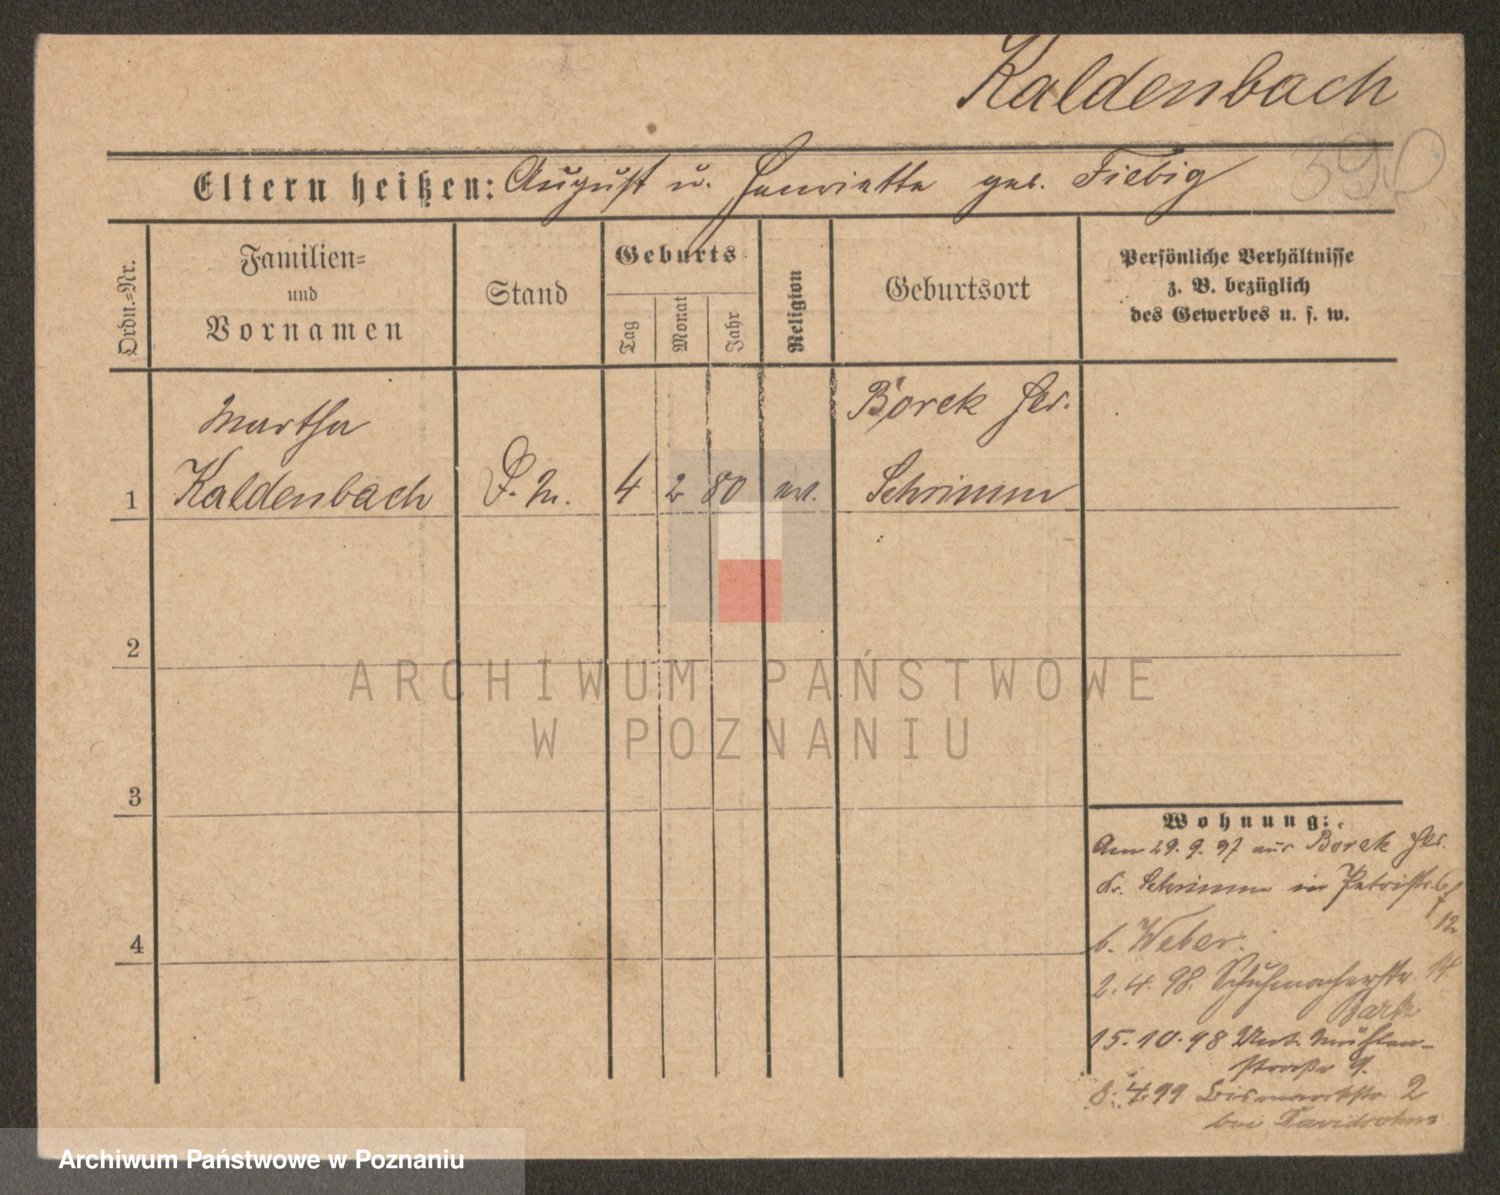 Kaldenbach
390
Eltern heißen: August u. Henriette geb. Fiebig
Ordn.=Nr.
Familien=
und
Vornamen
Stand
Geburts=
Tag
Monat
Jahr
Religion
Geburtsort
Persönliche Verhältnisse
z. B. bezüglich
des Gewerbes u. s. w.
Martha
Borek Kr.
1 Kaldenbach D. M. 4 2 80 ev. Schrimm
2
3
4
Wohnung:
Am 29. 9. 97 aus Borek
Kr. Schrimm in Petristr. 6
12
b. Weber.
2. 4. 98. Schuhmacherstr. 14
15. 10. 98 Unt. Mühlen-
straße 9.
8. 4. 99 Bismarckstr. 2
bei Davidsohn
ARCHIWUM PAŃSTWOWE
W POZNANIU
Archiwum Państwowe w Poznaniu